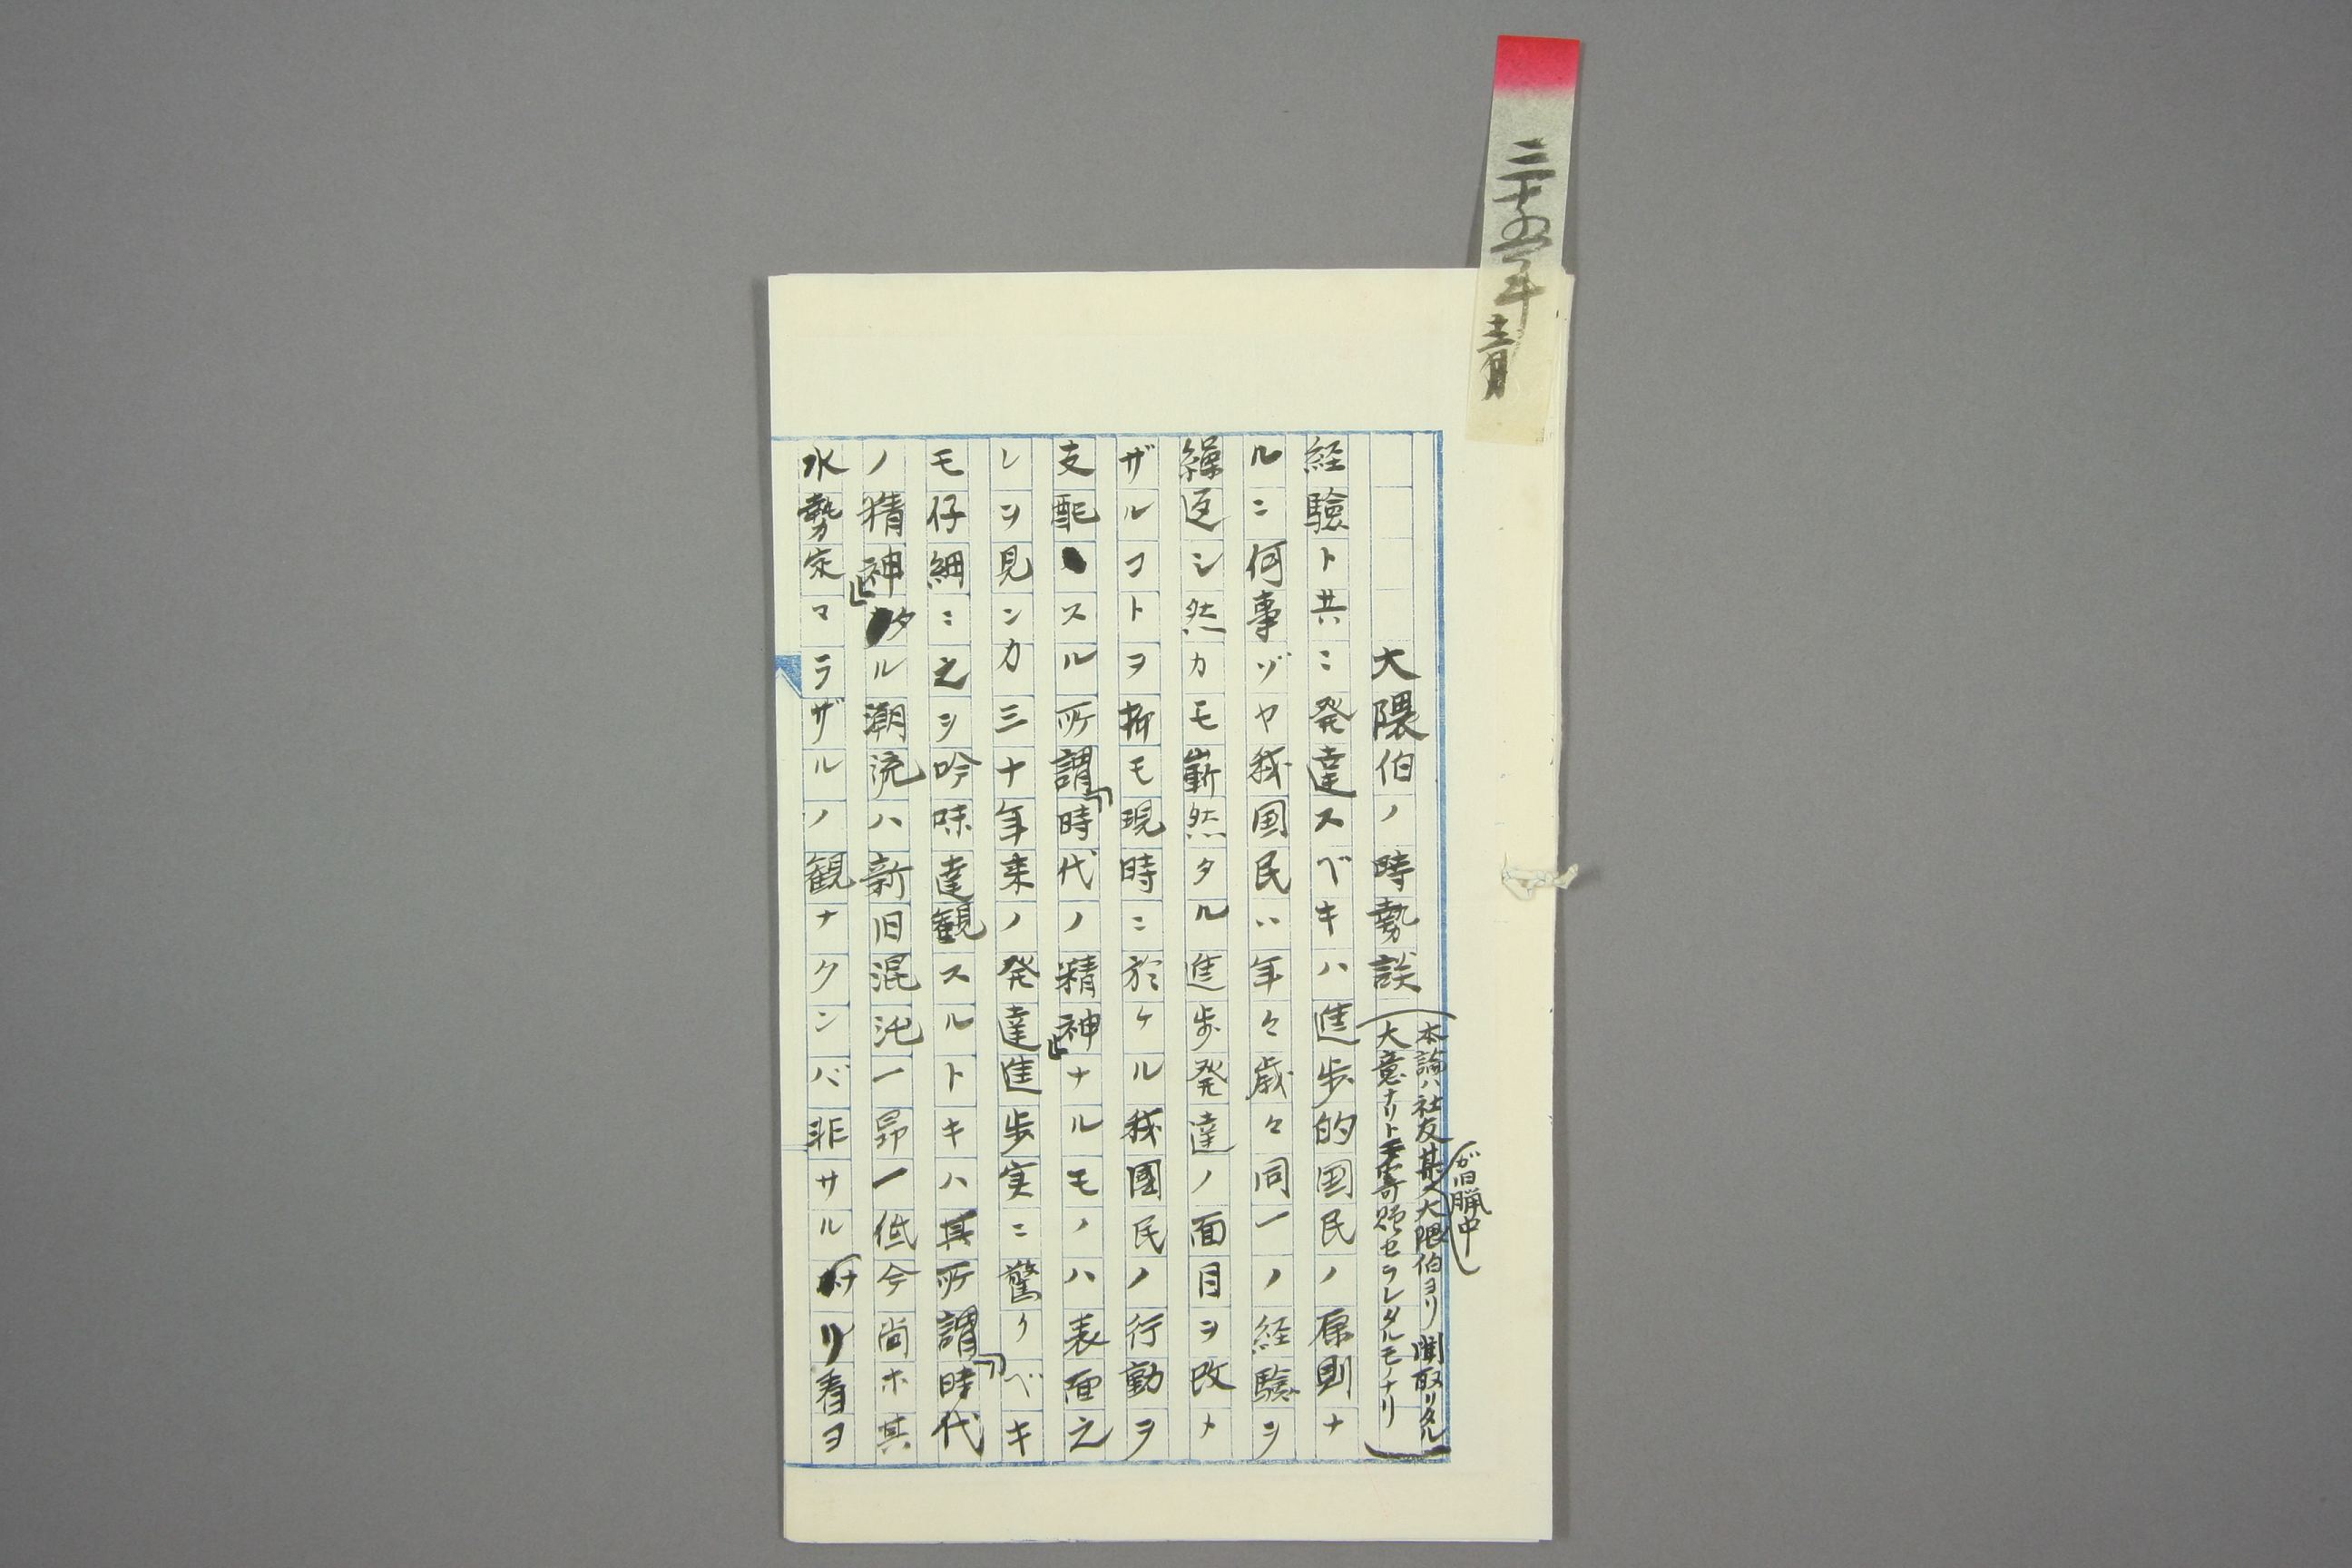 三十四年十二月
大隈伯ノ時勢談
(本論ハ社友某が旧臘中大隈伯ヨリ聞取リタル
大意ナリトテ寄稿セラレタルモノナリ)
経験ト共ニ発達スベキハ進歩的国民ノ原則ナ
ルニ何事ゾヤ我国民ハ年々歳々同一ノ経験ヲ
繰返シ然カモ嶄然タル進歩発達ノ面目ヲ改メ
ザルコトヲ抑モ現時ニ於ケル我國民ノ行動ヲ
支配スル所謂『時代ノ精神』ナルモノハ表面之
レヲ見ンカ三十年来ノ発達進歩実ニ驚クベキ
モ仔細ニ之ヲ吟味達観スルトキハ其所謂『時代
ノ精神』タル潮流ハ新旧混沌一昻一低今尚ホ其
水勢定マラザルノ観ナクンバ非サルナリ看ヨ